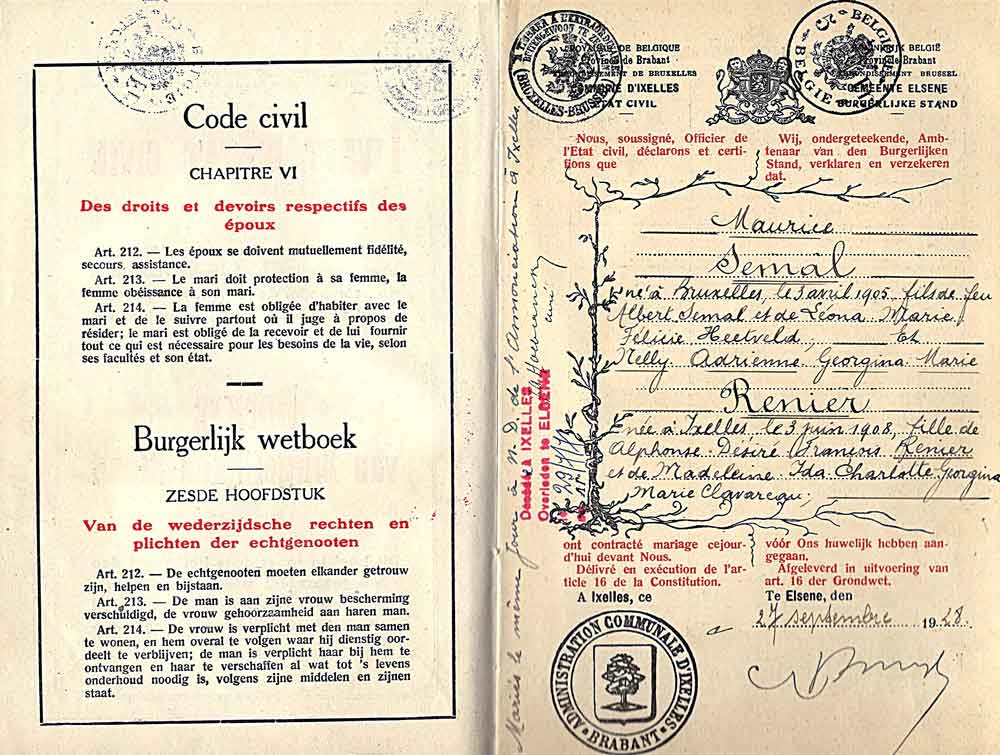 Code civil
CHAPITRE VI
Des droits et devoirs respectifs des
époux
Art. 212. — Les époux se doivent mutuellement fidélité,
secours, assistance.
Art. 213. — Le mari doit protection à sa femme, la
femme obéissance à son mari.
Art. 214. — La femme est obligée d'habiter avec le
mari et de le suivre partout où il juge à propos de
résider; le mari est obligé de la recevoir et de lui fournir
tout ce qui est nécessaire pour les besoins de la vie, selon
ses facultés et son état.
Burgerlijk wetboek
ZESDE HOOFDSTUK
Van de wederzijdsche rechten en
plichten der echtgenooten
Art. 212. — De echtgenooten moeten elkander getrouw
zijn, helpen en bijstaan.
Art. 213. — De man is aan zijne vrouw bescherming
verschuldigd, de vrouw gehoorzaamheid aan haren man.
Art. 214. — De vrouw is verplicht met den man samen
te wonen, en hem overal te volgen waar hij dienstig oor-
deelt te verblijven; de man is verplicht haar bij hem te
ontvangen en haar te verschaffen al wat tot 's levens
onderhoud noodig is, volgens zijne middelen en zijnen
staat.
DE BELGIQUE
Province de Brabant
DE BRUXELLES
COMMUNE D'IXELLES
ETAT CIVIL
BELGIË
Provincie Brabant
BRUSSEL
GEMEENTE ELSENE
BURGERLIJKE STAND
BRUXELLES-BRUSSEL
BELGIE
Nous, soussigné, Officier de
l'Etat civil, déclarons et certi-
fions que
Wij, ondergeteekende, Amb-
tenaar van den Burgerlijken
Stand, verklaren en verzekeren
dat.
Maurice
Semal
né à Bruxelles, le 3 avril 1905, fils de feu
Albert Semal et de Léona Marie
Félicie Heetveld, Et
Nelly Adrienne Georgina Marie
Renier
née à Ixelles, le 3 juin 1908, fille de
Alphonse Désiré François Renier
et de Madeleine Ida Charlotte Georgina
Marie Clavareau;
ont contracté mariage cejour-
d'hui devant Nous.
Délivré en exécution de l'ar-
ticle 16 de la Constitution.
A Ixelles, ce
vóór Ons huwelijk hebben aan-
gegaan.
Afgeleverd in uitvoering van
art. 16 der Grondwet.
Te Elsene, den
27 septembre 1928.
ADMINISTRATION COMMUNALE D'IXELLES
BRABANT
Mariés le même jour à N. D. de l'Annonciation à Ixelles
curé
Décédé à IXELLES
Overleden te ELSENE